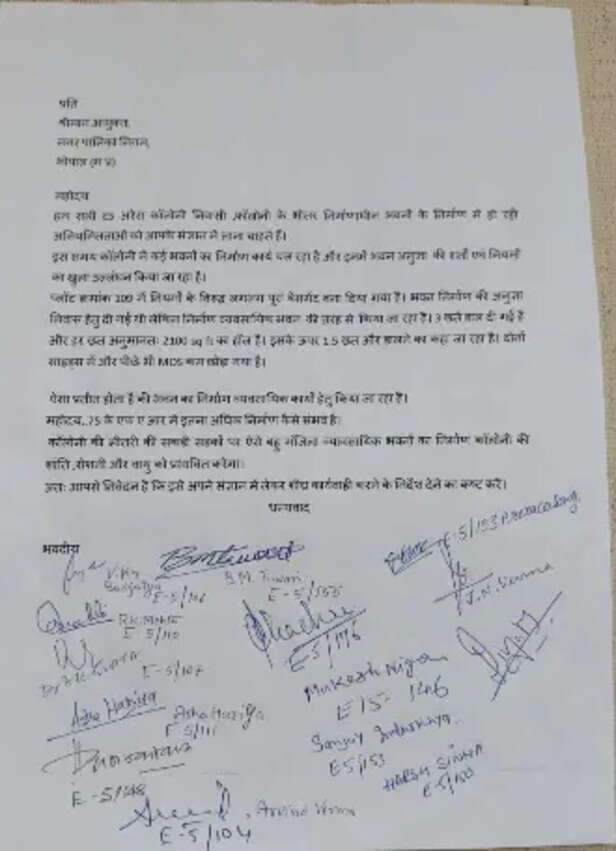 प्रति
श्रीमान आयुक्त,
नगर पालिका निगम,
भोपाल (म प्र)
महोदय
हम सभी E5 अरेरा कॉलोनी निवासी ,कॉलोनी के भीतर निर्माणाधीन भवनों के निर्माण में हो रही
अनियमितताओं को आपके संज्ञान में लाना चाहते हैं।
इस समय कॉलोनी में कई भवनों का निर्माण कार्य चल रहा है और इनमें भवन अनुज्ञा की शर्तों एवं नियमों
का खुला उल्लंघन किया जा रहा है।
प्लॉट क्रमांक 109 में नियमों के विरुद्ध लगभग पूरा बेसमेंट बना दिया गया है। भवन निर्माण की अनुज्ञा
निवास हेतु दी गई थी लेकिन निर्माण व्यवसायिक भवन की तरह से किया जा रहा है। 3 छतें डाल दी गई है
और हर छत अनुमानतः 2100 sq ft का हॉल है। इसके ऊपर 1.5 छत और डालने का कहा जा रहा है। दोनों
साइड्स में और पीछे भी MOS कम छोड़ा गया है।
ऐसा प्रतीत होता है की भवन का निर्माण व्यवसायिक कार्यो हेतु किया जा रहा है।
महोदय,.75 के एफ ए आर में इतना अधिक निर्माण कैसे संभव है।
कॉलोनी की भीतरी की सकड़ी सड़कों पर ऐसे बहु मंजिला व्यावसायिक भवनों का निर्माण कॉलोनी की
शांति ,रोशनी और वायु को प्रभावित करेगा।
अतः आपसे निवेदन है कि इसे अपने संज्ञान में लेकर शीघ्र कार्यवाही करने के निर्देश देने का कष्ट करें।
धन्यवाद
भवदीय
E-5/193
Vipin
E-5/106
B.M. Tiwari
E-5/155
J.N. Verma
E-5/110
E-5/176
E-5/107
Mukesh Nigam
E/5- 146
Asha Hariya
E-5/111
Sanjay
E5/153
HARSH SINHA
E-5/150
E-5/148
Arvind Verma
E-5/104